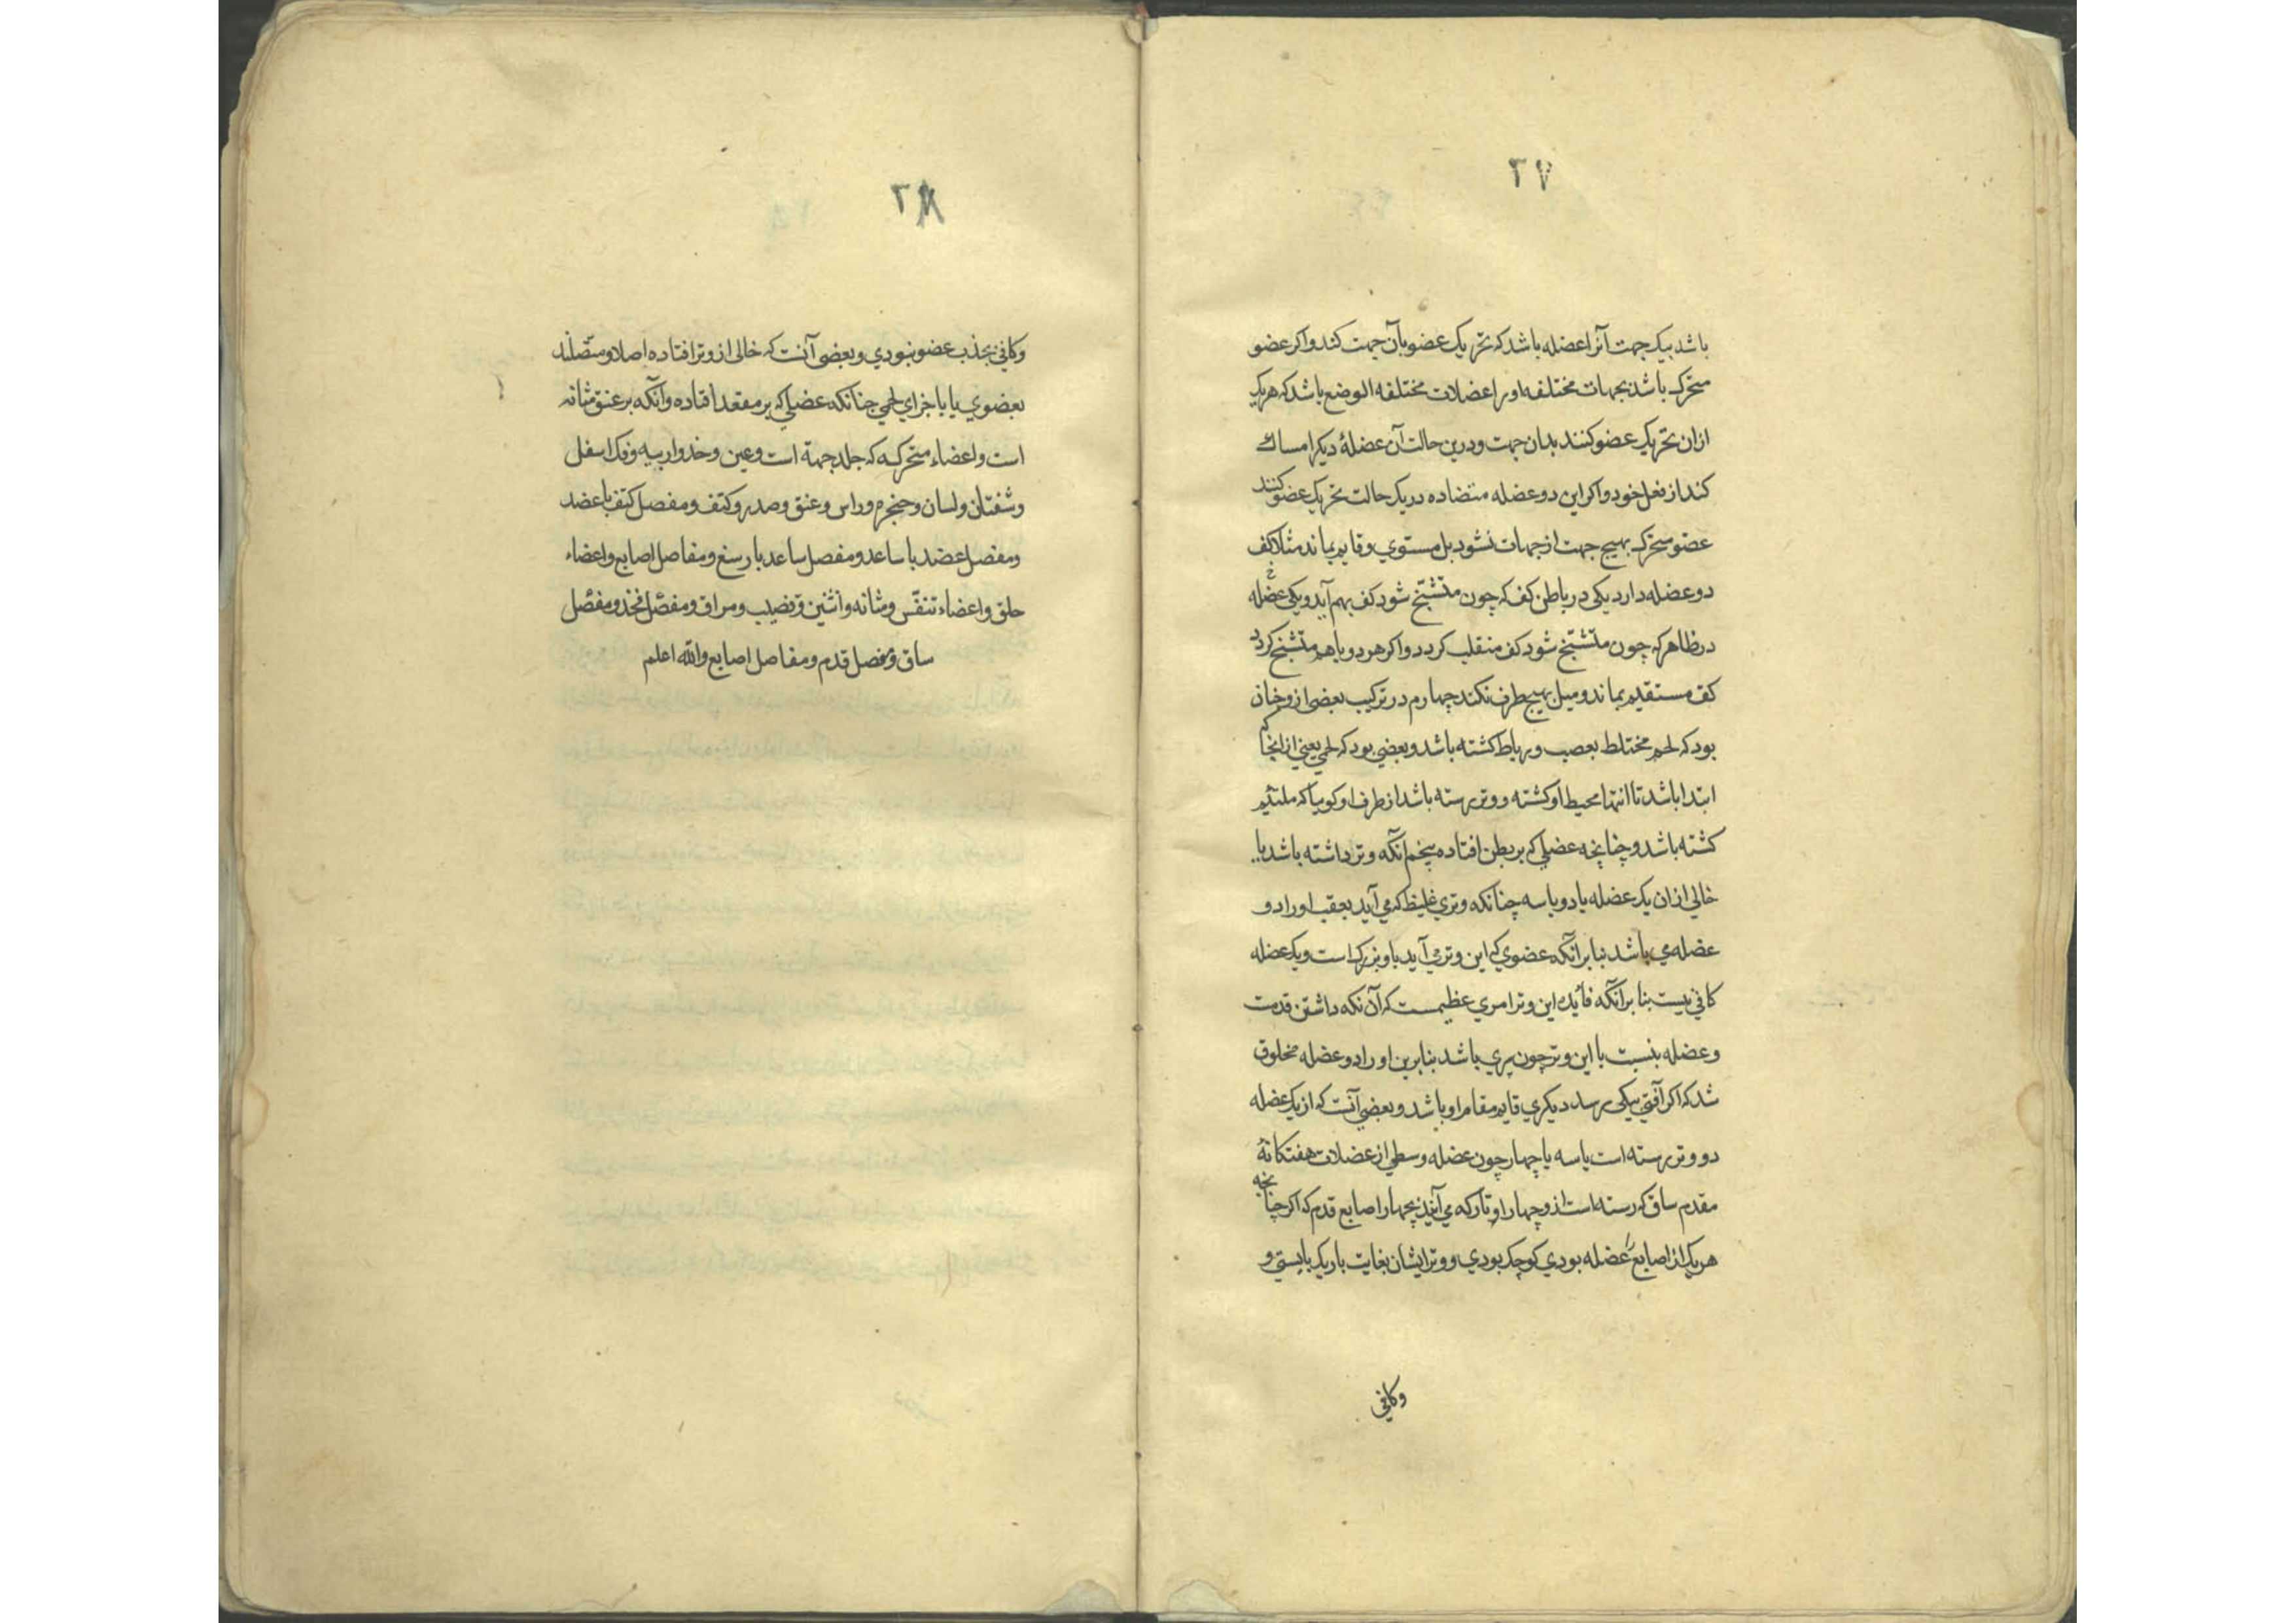 ۳۷
باشد بیک جهت آنرا عضله باشد که تحریک عضو بآن جهت کند و اکر عضو
متحرک باشد بجهات مختلفه او را عضلات مختلفه الوضع باشد که هریک
ازان تحریک عضو کنند بدان جهت و درین حالت آن عضلهٔ دیکر امساک
کند از فعل خود و اکر این دو عضله متضاده در یک حالت تحریک عضو کنند
عضو متحرک بهیچ جهت از جهات نشود بل مستوی و قایم بماند مثلا کف
دو عضله دارد یکی در باطن کف که چون متشنّج شود کف بهم آید و یکی عضله
در ظاهر که چون متشنّج شود کف منقلب کردد و اکر هر دو باهم متشنّج کردد
کف مستقیم بماند و میل بهیچ طرف نکند چهارم در ترکیب بعضی ازو چنان
بود که لحم مختلط بعصب و رباط کشته باشد و بعضی بود که لحمی یعنی از انجا که
ابتدا باشد تا انتها محیط او کشته و وتر رسته باشد از طرف او کوییا که ملتئم
کشته باشد و چنانچه عضلی که بر بطن افتاده پنجم آنکه وتر داشته باشد یا
خالی ازان یک عضله یا دو یا سه چنانکه وتری غلیظ که می آید بعقب او را دو
عضله می باشد بنا بر آنکه عضوی که این وتر می آید باو بزرک است و یک عضله
کافی نیست بنا بر آنکه فایده این وتر امری عظیمست که آن نکه داشتن قدمت
و عضله بنسبت با این وتر چون پری باشد بنا برین او را دو عضله مخلوق
شد که اکر آفتی بیکی برسد دیکری قایم مقام او باشد و بعضی آنست که از یک عضله
دو وتر رسته است یا سه یا چهار چون عضله وسطی از عضلات هفتکانهٔ
مقدم ساق که رسته است ازو چهار اوتار که می آیند بچهار اصابع قدم که اکر چنانچه
هریک از اصابع را عضله بودی کوچک بودی و وتر ایشان بغایت باریک بایستی و
وکافی
۳۸
وکافی بجذب عضو نبودی و بعضی آنست که خالی از وتر افتاده اصلا و متّصلند
بعضوی یا باجزای لحمی چنانکه عضلی که بر مقعد افتاده و آنکه بر عنق مثانه
است و اعضاء متحرکه که جلد جبهة است و عین و خد و ارنبه و فک اسفل
و شفتان و لسان و حنجره و راس و عنق و صدر و کتف و مفصل کتف با عضد
و مفصل عضد با ساعد و مفصل ساعد با رسغ و مفاصل اصابع و اعضاء
حلق و اعضاء تنفّس و مثانه و انثیین و قضیب و مراق و مفصل فخذ و مفصل
ساق و مفصل قدم و مفاصل اصابع والله اعلم